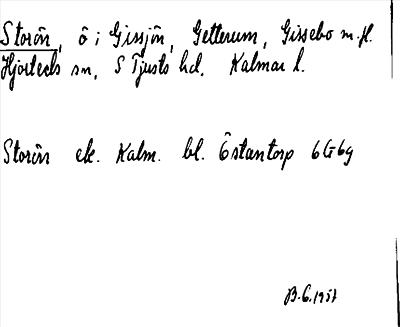 Storön, ö i Gissjön, Getterum, Gissebo m.fl.
Hjorteds sn, S Tjusts hd, Kalmar l.
Storön ek. Kalm. bl. Östantorp 6G6g
B.G. 1957